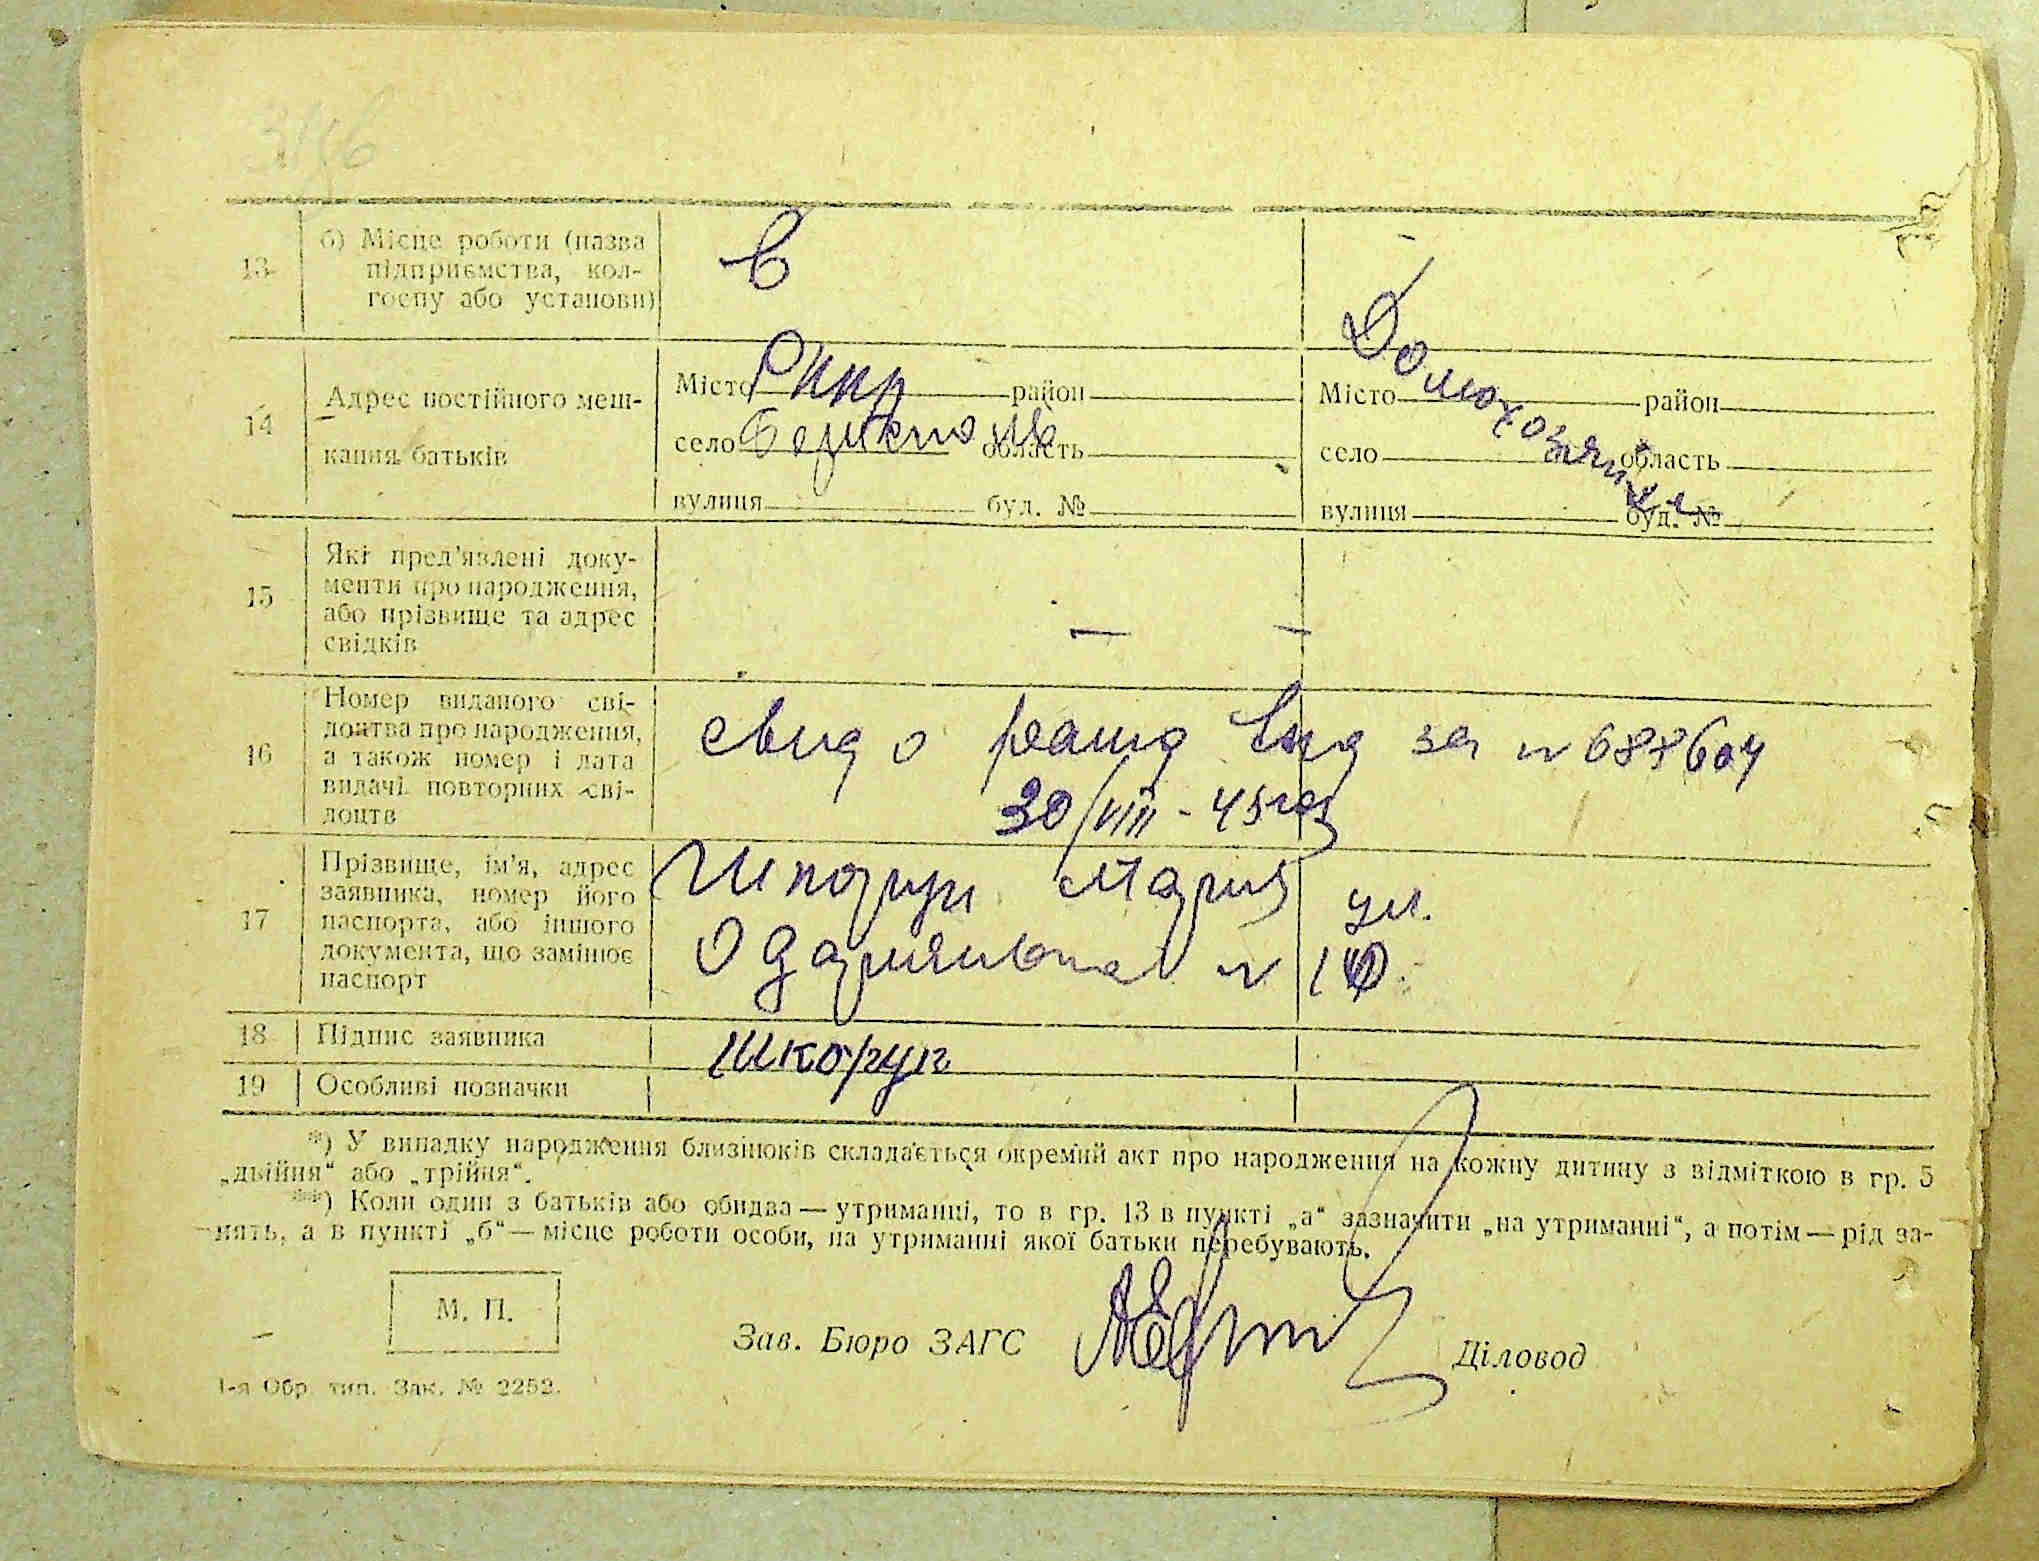 13
б) Місце роботи (назва
підприємства, кол-
госпу або установи)
в
14
Адрес постійного меш-
кання батьків
Місто район
село область
вулиця буд. №
Домохозяйка
Місто район
село область
вулиця буд. №
15
Які пред'явлені доку-
менти про народження,
або прізвище та адрес
свідків
— —
16
Номер виданого сві-
доцтва про народження,
а також номер і дата
видачі повторних сві-
доцтв
свид о рашд выд за № 688604
30/VIII - 45 год
17
Прізвище, ім'я, адрес
заявника, номер його
паспорта, або іншого
документа, що замінює
паспорт
Шкоруп Мария ул.
№
18 Підпис заявника
Шкоруп
19 Особливі позначки
*) У випадку народження близнюків складається окремий акт про народження на кожну дитину з відміткою в гр. 5
„двійня“ або „трійня“.
**) Коли один з батьків або обидва — утриманні, то в гр. 13 в пункті „а“ зазначити „на утриманні“, а потім — рід за-
нять, а в пункті „б“ — місце роботи особи, на утриманні якої батьки перебувають.
М. П.
Зав. Бюро ЗАГС
Діловод
1-я Обр. тип. Зак. № 2252.